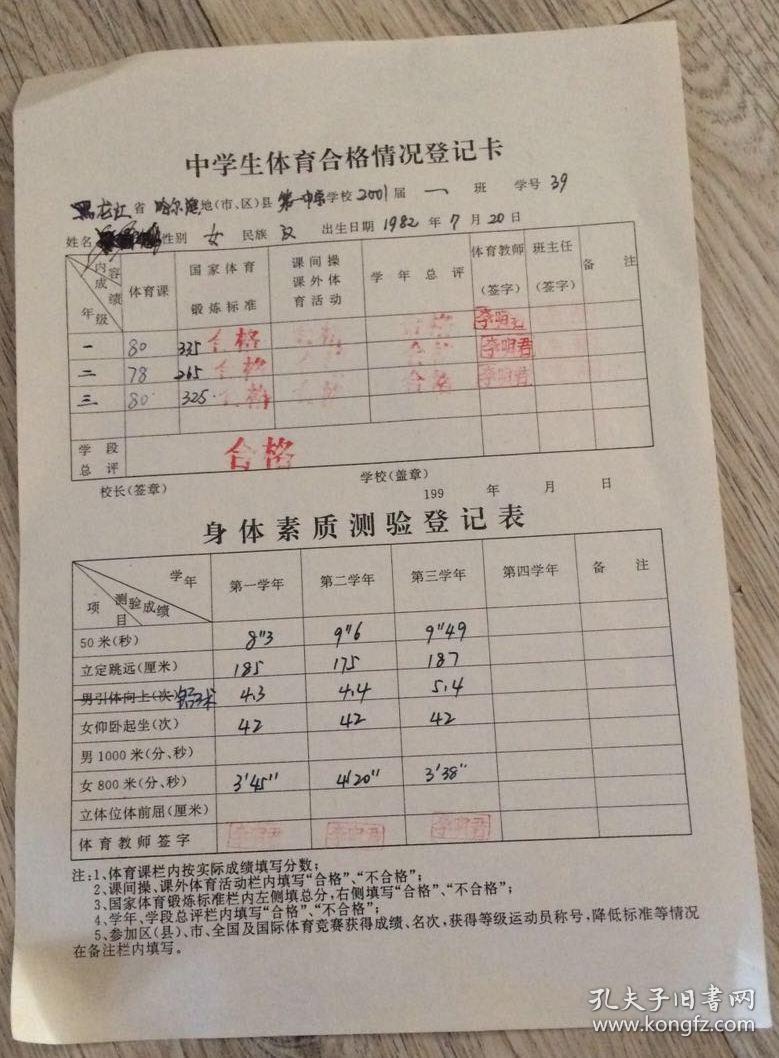 中学生体育合格情况登记卡
黑龙江省 哈尔滨地(市、区)县 第一中学校 2001届 一 班 学号 39
姓名 性别 女 民族 汉 出生日期 1982 年 7 月 20 日
内容 成绩 年级 体育课 国家体育锻炼标准 课间操课外体育活动 学年总评 体育教师(签字) 班主任(签字) 备注
一 80 335 合格 合格 合格 李明君
二 78 265 合格 合格 李明君
三 80 325 合格 合格 李明君
学段总评 合格
校长(签章) 学校(盖章) 199 年 月 日
身体素质测验登记表
学年 测验成绩 项目 第一学年 第二学年 第三学年 第四学年 备注
50米(秒) 8"3 9"6 9"49
立定跳远(厘米) 185 175 187
男引体向上(次) 铅球 4.3 4.4 5.4
女仰卧起坐(次) 42 42 42
男1000米(分、秒)
女800米(分、秒) 3'45" 4'20" 3'38"
立体位体前屈(厘米)
体育教师签字 李明君 李明君 李明君
注:1、体育课栏内按实际成绩填写分数;
2、课间操、课外体育活动栏内填写“合格”、“不合格”;
3、国家体育锻炼标准栏内左侧填总分,右侧填写“合格”、“不合格”;
4、学年、学段总评栏内填写“合格”、“不合格”;
5、参加区(县)、市、全国及国际体育竞赛获得成绩、名次,获得等级运动员称号,降低标准等情况
在备注栏内填写。
孔夫子旧书网
www.kongfz.com